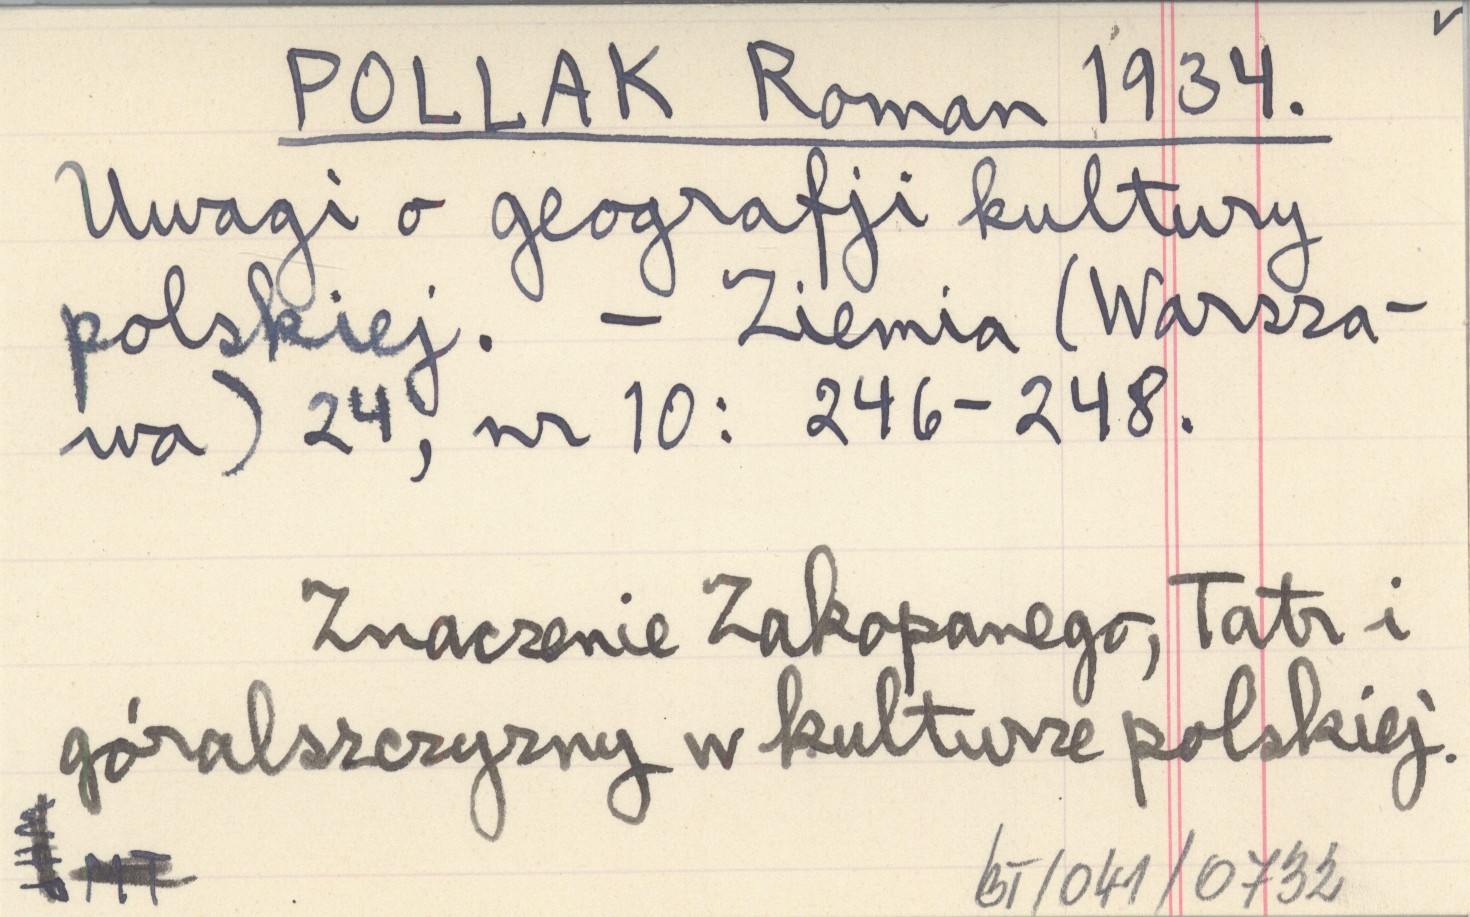 POLLAK Roman 1934.
Uwagi o geografji kultury
polskiej. – Ziemia (Warsza-
wa) 24, nr 10: 246-248.
Znaczenie Zakopanego, Tatr i
góralszczyzny w kulturze polskiej.
MT
BT/041/0732